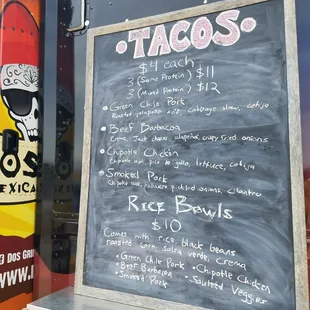 TACOS
$4 each
3 (Same Protein) $11
3 (Mixed Protein) $12
Green Chile Pork
Roasted jalapeno aioli, cabbage slaw, cotija
Beef Barbacoa
Crema, jalapeño, crispy fried onions
Chipotle Chicken
Chipotle aioli, pico de gallo, lettuce, cotija
Smoked Pork
Chipotle aioli, pickled onions, cilantro
Rice Bowls
$10
Comes with rice, black beans
roasted corn, salsa verde, crema
Green Chile Pork
Chipotle Chicken
Beef Barbacoa
Sauteed Veggies
Smoked Pork
OS
EXICAN
DOS GRI
WWW.